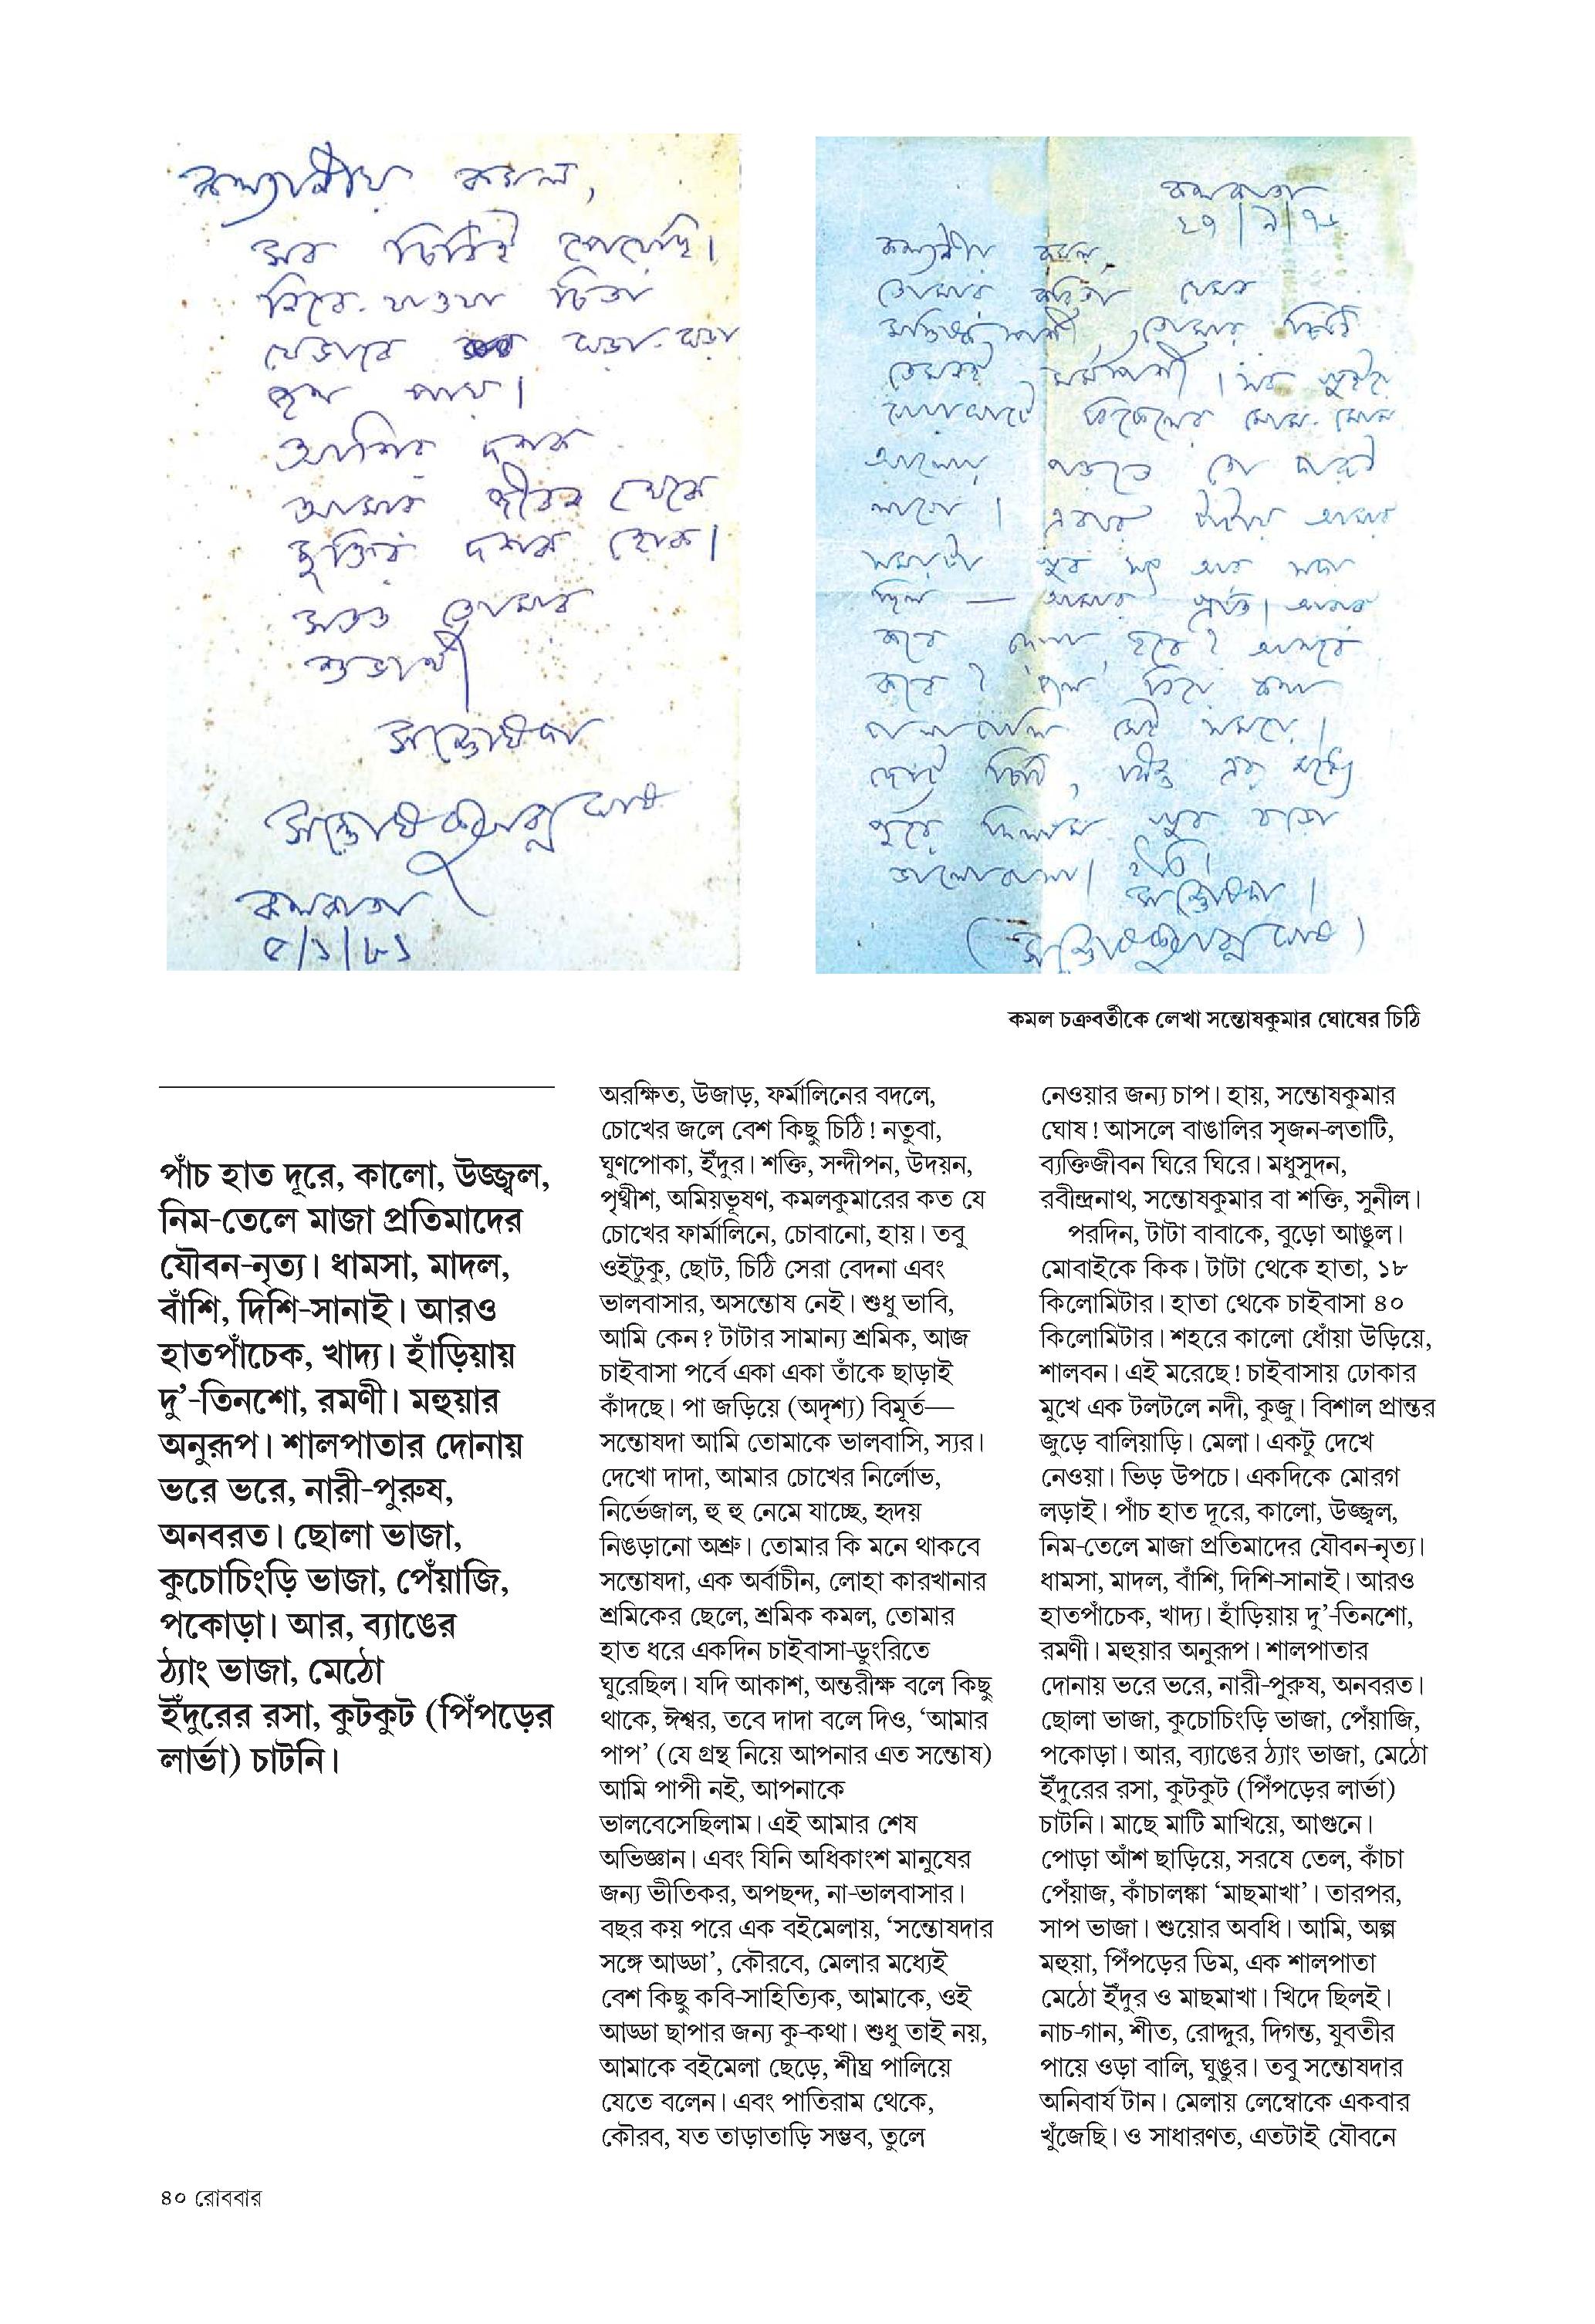 কল্যাণীয় কমল,
সব চিঠিই পেয়েছি।
নিবে-যাওয়া চিতা
যেভাবে ঘড়া-ঘড়া
জল পায়।
আশির দশক
আমার জীবন থেকে
মুক্তির দশক হোক।
সতত তোমার
শুভার্থী
সন্তোষদা
সন্তোষকুমার ঘোষ
কলকাতা
৫/১/৮১
কলকাতা
কল্যাণীয় কমল,
তোমার কবিতা যেমন
তোমার চিঠি
তেমনই মর্মস্পর্শী। সব
বিকেলের
আলোয় পড়তে তো দারুণ
লাগে। এবার টাটায় আমার
সময়টা খুব আর
ছিল — আমার প্রাপ্তি। আবার
কবে দেখা হবে? আসবে
কবে?
সেই সময়ে।
ছোট চিঠি, কিন্তু এর মধ্যে
পুরে দিলাম খুব বড়ো
ভালোবাসা। ইতি।
সন্তোষদা।
(সন্তোষকুমার ঘোষ)
কমল চক্রবর্তীকে লেখা সন্তোষকুমার ঘোষের চিঠি
পাঁচ হাত দূরে, কালো, উজ্জ্বল,
নিম-তেলে মাজা প্রতিমাদের
যৌবন-নৃত্য। ধামসা, মাদল,
বাঁশি, দিশি-সানাই। আরও
হাতপাঁচেক, খাদ্য। হাঁড়িয়ায়
দু'-তিনশো, রমণী। মহুয়ার
অনুরূপ। শালপাতার দোনায়
ভরে ভরে, নারী-পুরুষ,
অনবরত। ছোলা ভাজা,
কুচোচিংড়ি ভাজা, পেঁয়াজি,
পকোড়া। আর, ব্যাঙের
ঠ্যাং ভাজা, মেঠো
ইঁদুরের রসা, কুটকুট (পিঁপড়ের
লার্ভা) চাটনি।
অরক্ষিত, উজাড়, ফর্মালিনের বদলে,
চোখের জলে বেশ কিছু চিঠি! নতুবা,
ঘুণপোকা, ইঁদুর। শক্তি, সন্দীপন, উদয়ন,
পৃথ্বীশ, অমিয়ভূষণ, কমলকুমারের কত যে
চোখের ফার্মালিনে, চোবানো, হায়। তবু
ওইটুকু, ছোট, চিঠি সেরা বেদনা এবং
ভালবাসার, অসন্তোষ নেই। শুধু ভাবি,
আমি কেন? টাটার সামান্য শ্রমিক, আজ
চাইবাসা পর্বে একা একা তাঁকে ছাড়াই
কাঁদছে। পা জড়িয়ে (অদৃশ্য) বিমূর্ত—
সন্তোষদা আমি তোমাকে ভালবাসি, স্যর।
দেখো দাদা, আমার চোখের নির্লোভ,
নির্ভেজাল, হু হু নেমে যাচ্ছে, হৃদয়
নিঙড়ানো অশ্রু। তোমার কি মনে থাকবে
সন্তোষদা, এক অর্বাচীন, লোহা কারখানার
শ্রমিকের ছেলে, শ্রমিক কমল, তোমার
হাত ধরে একদিন চাইবাসা-ডুংরিতে
ঘুরেছিল। যদি আকাশ, অন্তরীক্ষ বলে কিছু
থাকে, ঈশ্বর, তবে দাদা বলে দিও, 'আমার
পাপ' (যে গ্রন্থ নিয়ে আপনার এত সন্তোষ)
আমি পাপী নই, আপনাকে
ভালবেসেছিলাম। এই আমার শেষ
অভিজ্ঞান। এবং যিনি অধিকাংশ মানুষের
জন্য ভীতিকর, অপছন্দ, না-ভালবাসার।
বছর কয় পরে এক বইমেলায়, 'সন্তোষদার
সঙ্গে আড্ডা', কৌরবে, মেলার মধ্যেই
বেশ কিছু কবি-সাহিত্যিক, আমাকে, ওই
আড্ডা ছাপার জন্য কু-কথা। শুধু তাই নয়,
আমাকে বইমেলা ছেড়ে, শীঘ্র পালিয়ে
যেতে বলেন। এবং পাতিরাম থেকে,
কৌরব, যত তাড়াতাড়ি সম্ভব, তুলে
নেওয়ার জন্য চাপ। হায়, সন্তোষকুমার
ঘোষ! আসলে বাঙালির সৃজন-লতাটি,
ব্যক্তিজীবন ঘিরে ঘিরে। মধুসুদন,
রবীন্দ্রনাথ, সন্তোষকুমার বা শক্তি, সুনীল।
পরদিন, টাটা বাবাকে, বুড়ো আঙুল।
মোবাইকে কিক। টাটা থেকে হাতা, ১৮
কিলোমিটার। হাতা থেকে চাইবাসা ৪০
কিলোমিটার। শহরে কালো ধোঁয়া উড়িয়ে,
শালবন। এই মরেছে! চাইবাসায় ঢোকার
মুখে এক টলটলে নদী, কুজু। বিশাল প্রান্তর
জুড়ে বালিয়াড়ি। মেলা। একটু দেখে
নেওয়া। ভিড় উপচে। একদিকে মোরগ
লড়াই। পাঁচ হাত দূরে, কালো, উজ্জ্বল,
নিম-তেলে মাজা প্রতিমাদের যৌবন-নৃত্য।
ধামসা, মাদল, বাঁশি, দিশি-সানাই। আরও
হাতপাঁচেক, খাদ্য। হাঁড়িয়ায় দু'-তিনশো,
রমণী। মহুয়ার অনুরূপ। শালপাতার
দোনায় ভরে ভরে, নারী-পুরুষ, অনবরত।
ছোলা ভাজা, কুচোচিংড়ি ভাজা, পেঁয়াজি,
পকোড়া। আর, ব্যাঙের ঠ্যাং ভাজা, মেঠো
ইঁদুরের রসা, কুটকুট (পিঁপড়ের লার্ভা)
চাটনি। মাছে মাটি মাখিয়ে, আগুনে।
পোড়া আঁশ ছাড়িয়ে, সরষে তেল, কাঁচা
পেঁয়াজ, কাঁচালঙ্কা 'মাছমাখা'। তারপর,
সাপ ভাজা। শুয়োর অবধি। আমি, অল্প
মহুয়া, পিঁপড়ের ডিম, এক শালপাতা
মেঠো ইঁদুর ও মাছমাখা। খিদে ছিলই।
নাচ-গান, শীত, রোদ্দুর, দিগন্ত, যুবতীর
পায়ে ওড়া বালি, ঘুঙুর। তবু সন্তোষদার
অনিবার্য টান। মেলায় লেম্বোকে একবার
খুঁজেছি। ও সাধারণত, এতটাই যৌবনে
৪০ রোববার